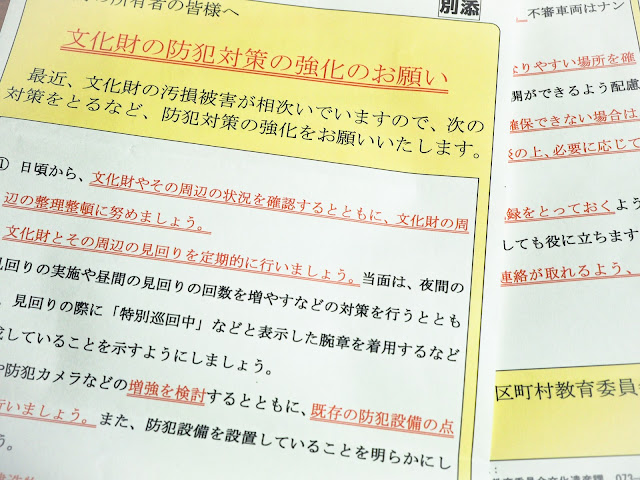 の所有者の皆様へ
別添
文化財の防犯対策の強化のお願い
最近、文化財の汚損被害が相次いでいますので、次の
対策をとるなど、防犯対策の強化をお願いいたします。
① 日頃から、文化財やその周辺の状況を確認するとともに、文化財の周
辺の整理整頓に努めましょう。
文化財とその周辺の見回りを定期的に行いましょう。当面は、夜間の
見回りの実施や昼間の見回りの回数を増やすなどの対策を行うととも
、見回りの際に「特別巡回中」などと表示した腕章を着用するなど
していることを示すようにしましょう。
や防犯カメラなどの増強を検討するとともに、既存の防犯設備の点
行いましょう。また、防犯設備を設置していることを明らかにし
う。
不審車両はナン
なりやすい場所を確
開ができるよう配慮
確保できない場合は
の上、必要に応じて
録をとっておくよう
しても役に立ちます
連絡が取れるよう、
区町村教育委員会